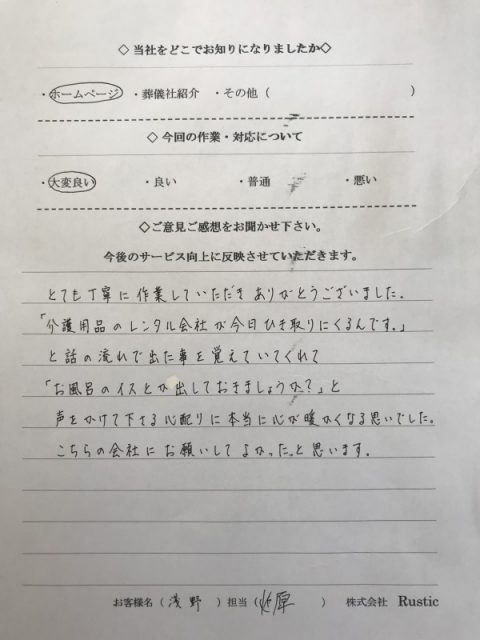 ◇ 当社をどこでお知りになりましたか◇
・ホームページ ・葬儀社紹介 ・その他（ ）
◇ 今回の作業・対応について
・大変良い ・良い ・普通 ・悪い
◇ご意見ご感想をお聞かせ下さい。
今後のサービス向上に反映させていただきます。
とても丁寧に作業していただきありがとうございました。
「介護用品のレンタル会社が今日ひき取りにくるんです。」
と話の流れで出た事を覚えていてくれて
「お風呂のイスとか出しておきましょうか?」と
声をかけて下さる心配りに本当に心が暖かくなる思いでした。
こちらの会社にお願いしてよかったと思います。
お客様名（浅野）担当（ 原 ） 株式会社 Rustic